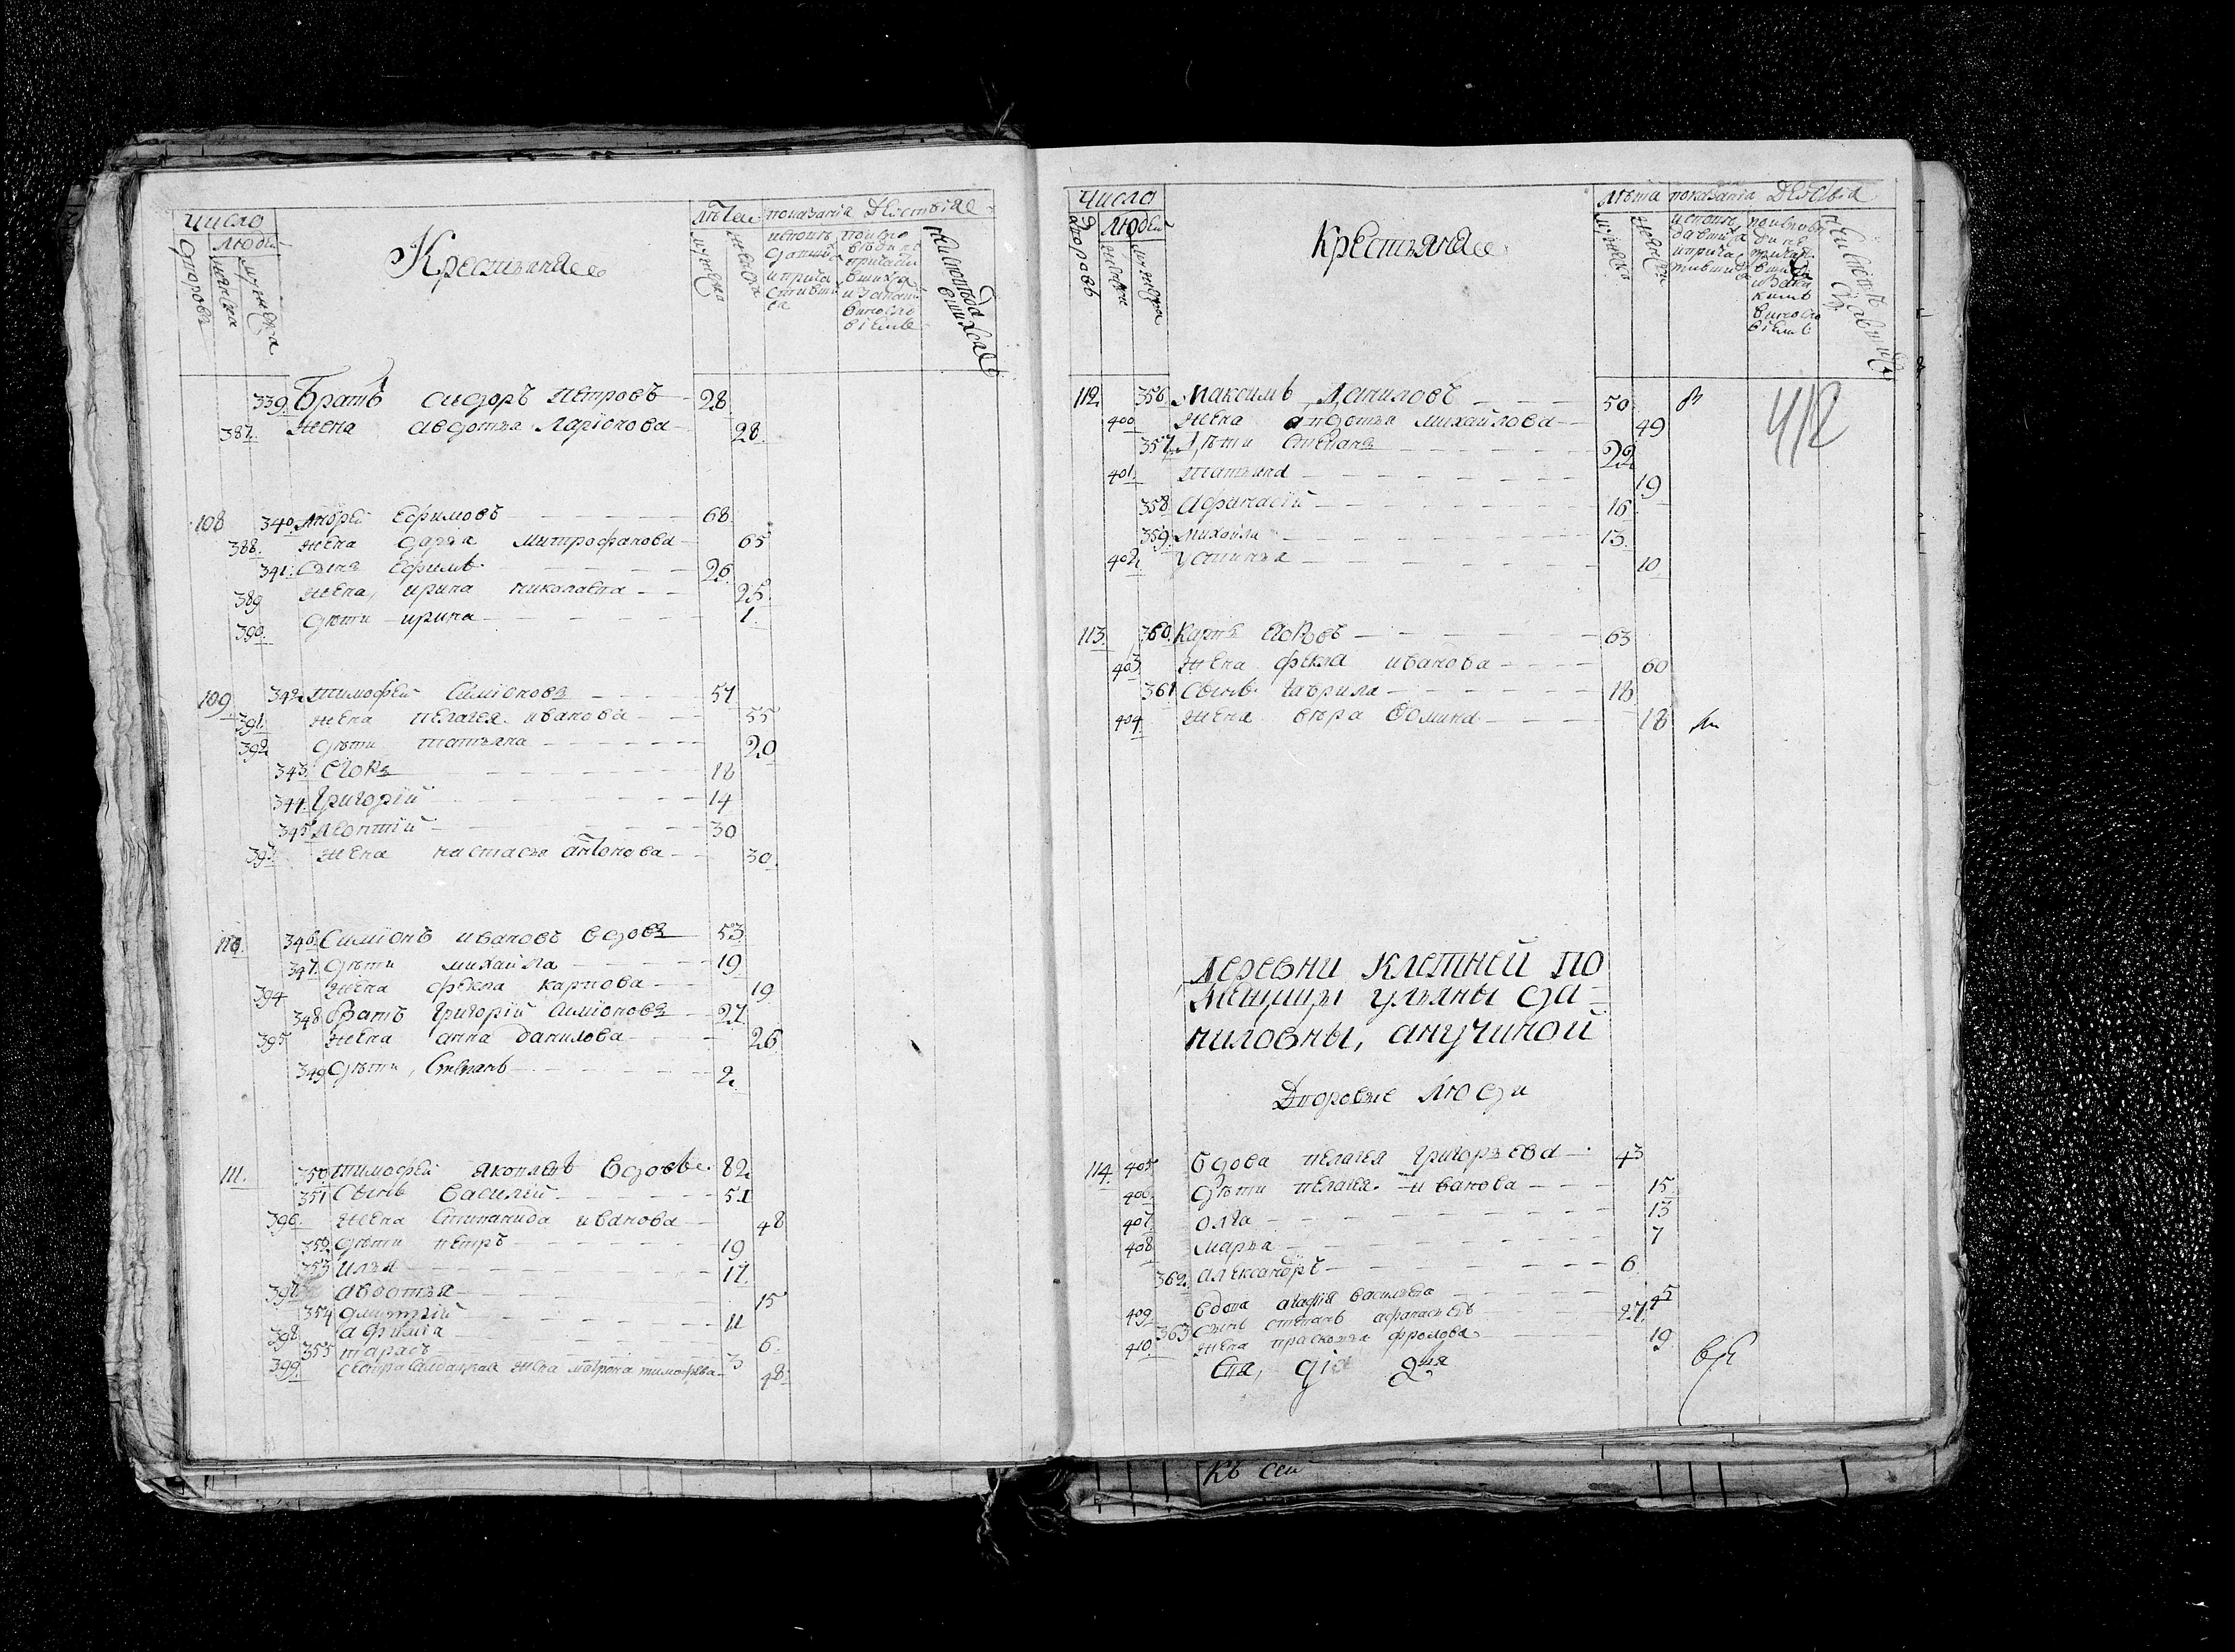 Число
Людей
Дворовъ
женска
мужеска
Крестьяне
Лѣта
мужеска
женска
показанiя Действiя
339. Братъ сидоръ петровъ 28
387. жена авдотья Ларiонова 28
108 340. Андрей Ефимовъ 68
388. жена дарья митрофанова 65
341. Сынъ Ефимъ 26
389 жена, ирина николаевна 25
390. дѣти ирина 1
109 342. тимофей Симiоновъ 57
391. жена пелагея иванова 55
392. дѣти татьяна 20
343. Егоръ 18
344. Григорiй 14
345. Леонтiй 30
393. жена настасья антонова 30
110. 346. Симiонъ ивановъ вдовъ 53
347. дѣти михайла 19
394 жена фекла карпова 19
348. Братъ Григорiй Симiоновъ 27
395. жена анна данилова 26
349 дѣти, Степанъ 2
111. 350. тимофей яковлевъ вдовъ 82
351 Сынъ василiй 51
396. жена Степанида иванова 48
352. дѣти петръ 19
353 илья 17
397 авдотья 15
354 дмитрiй 11
398 афимiя 6
355 тарасъ 3
399. сестра Салдацкая жена матрона тимофева 48
Число
Дворовъ
Людей
женски
мужеска
Крестьяне
Лѣта
мужеска
женска
показанiя Действiя
412
112. 356. Максимъ Даниловъ 50
400 жена авдотья михайлова 49
357. Дѣти Степанъ 22
401. татьяна 19
358. афанасiй 16
359. михайла 13
402. устинья 10
113. 360. Карпъ Егоровъ 63
403. жена фекла иванова 60
361 Сынъ гаврила 18
404. жена вѣра Фомина 18
Деревни Клетней по
мещицы ульяны да
ниловны, анучиной
Дворовые люди
114. 405 вдова пелагея Григорьева 43
406. дѣти пелагея иванова 15
407. олга 13
408. марья 7
362. александръ 6
409. вдова агафiя васильева 45
363 Сынъ степанъ афанасьевъ 27
410. жена прасковья фролова 19
Къ сей